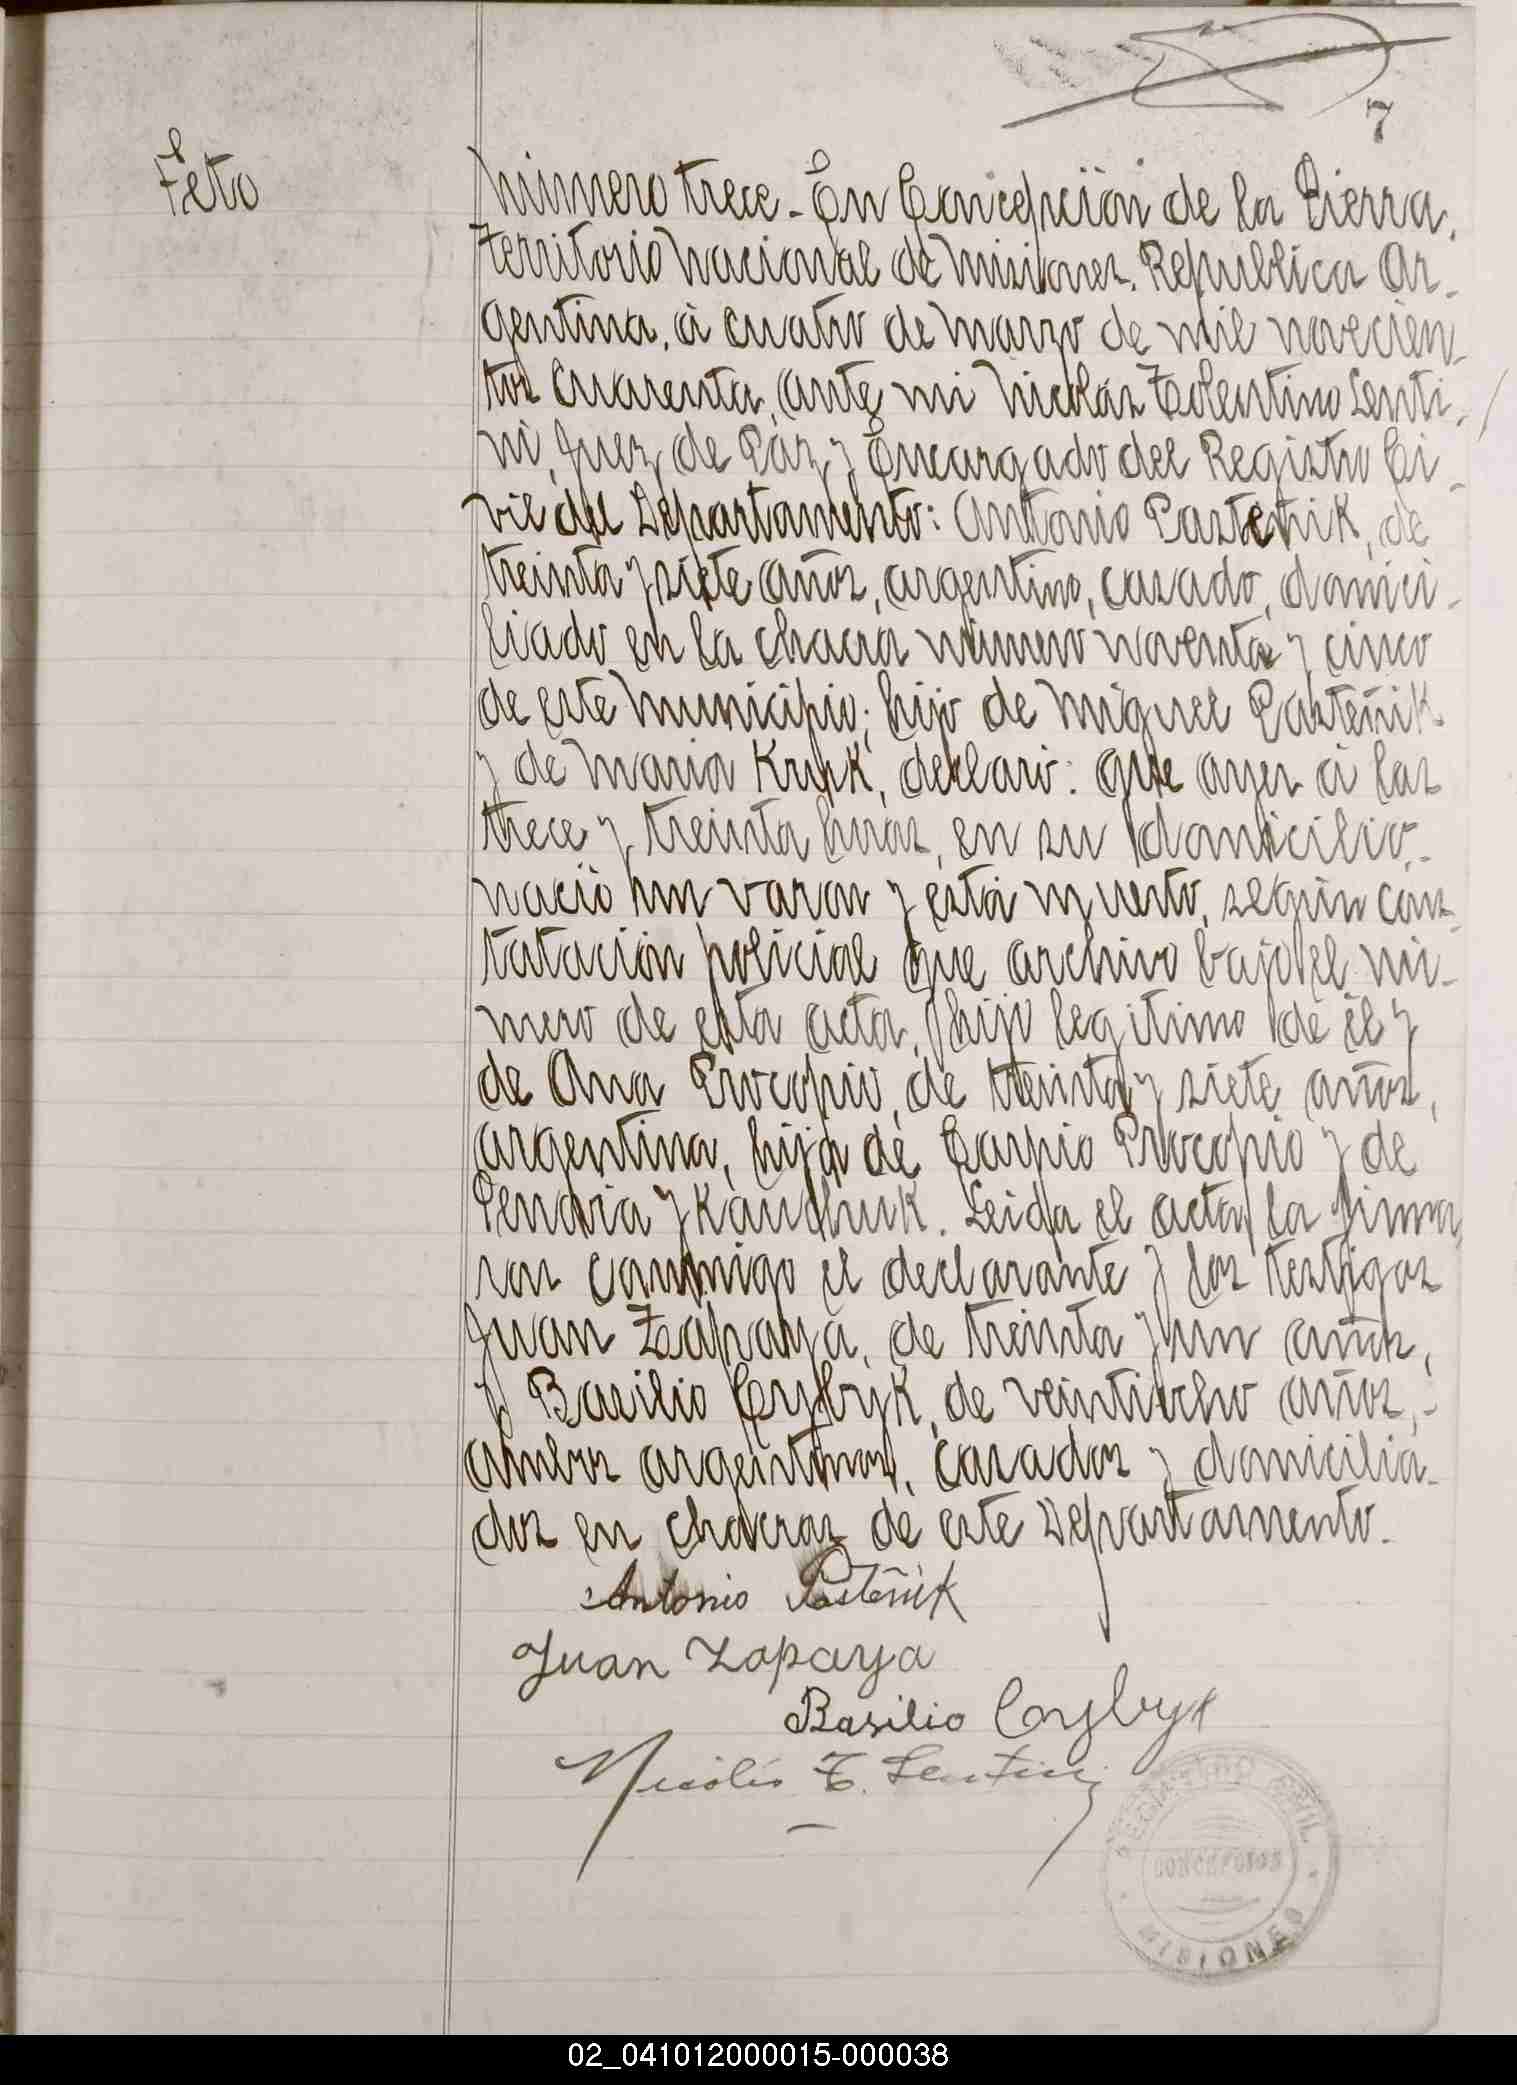 7
Feto
Número trece - En Concepción de la Sierra,
Territorio Nacional de Misiones. Republica Ar-
gentina, à cuatro de Marzo de mil novecien-
tos cuarenta, ante mi Nicolás Tolentino Lenti-
ni, Juez de Páz y Encargado del Registro Ci-
vil del Departamento: Antonio Pasteñik, de
treinta y siete años, argentino, casado, domici-
liado en la chacra número noventa y cinco
de este Municipio; hijo de Miguel Pasteñik
y de Maria Kruk, declaró: que ayer à las
trece y treinta horas, en su domicilio,-
nació un varon y está muerto, según cons-
tatación policial que archivo bajo el nú-
mero de esta acta, hijo legitimo de él y
de Ana Procopio, de treinta y siete años,
argentina, hija de Carpio Procopio y de
Kandhuk. Leida el acta, la firma-
ron conmigo el declarante y los testigos
Juan Zapaya, de treinta y un años,
y Basilio Cybryk, de veintiocho años,-
ambos argentinos, casados y domicilia-
dos en chacras de este Departamento.
Antonio Pasteñik
Juan Zapaya
Basilio Cyzbryk
Nicolás T. Lentini
REGISTRO CIVIL
CONCEPCION
MISIONES
02_041012000015-000038